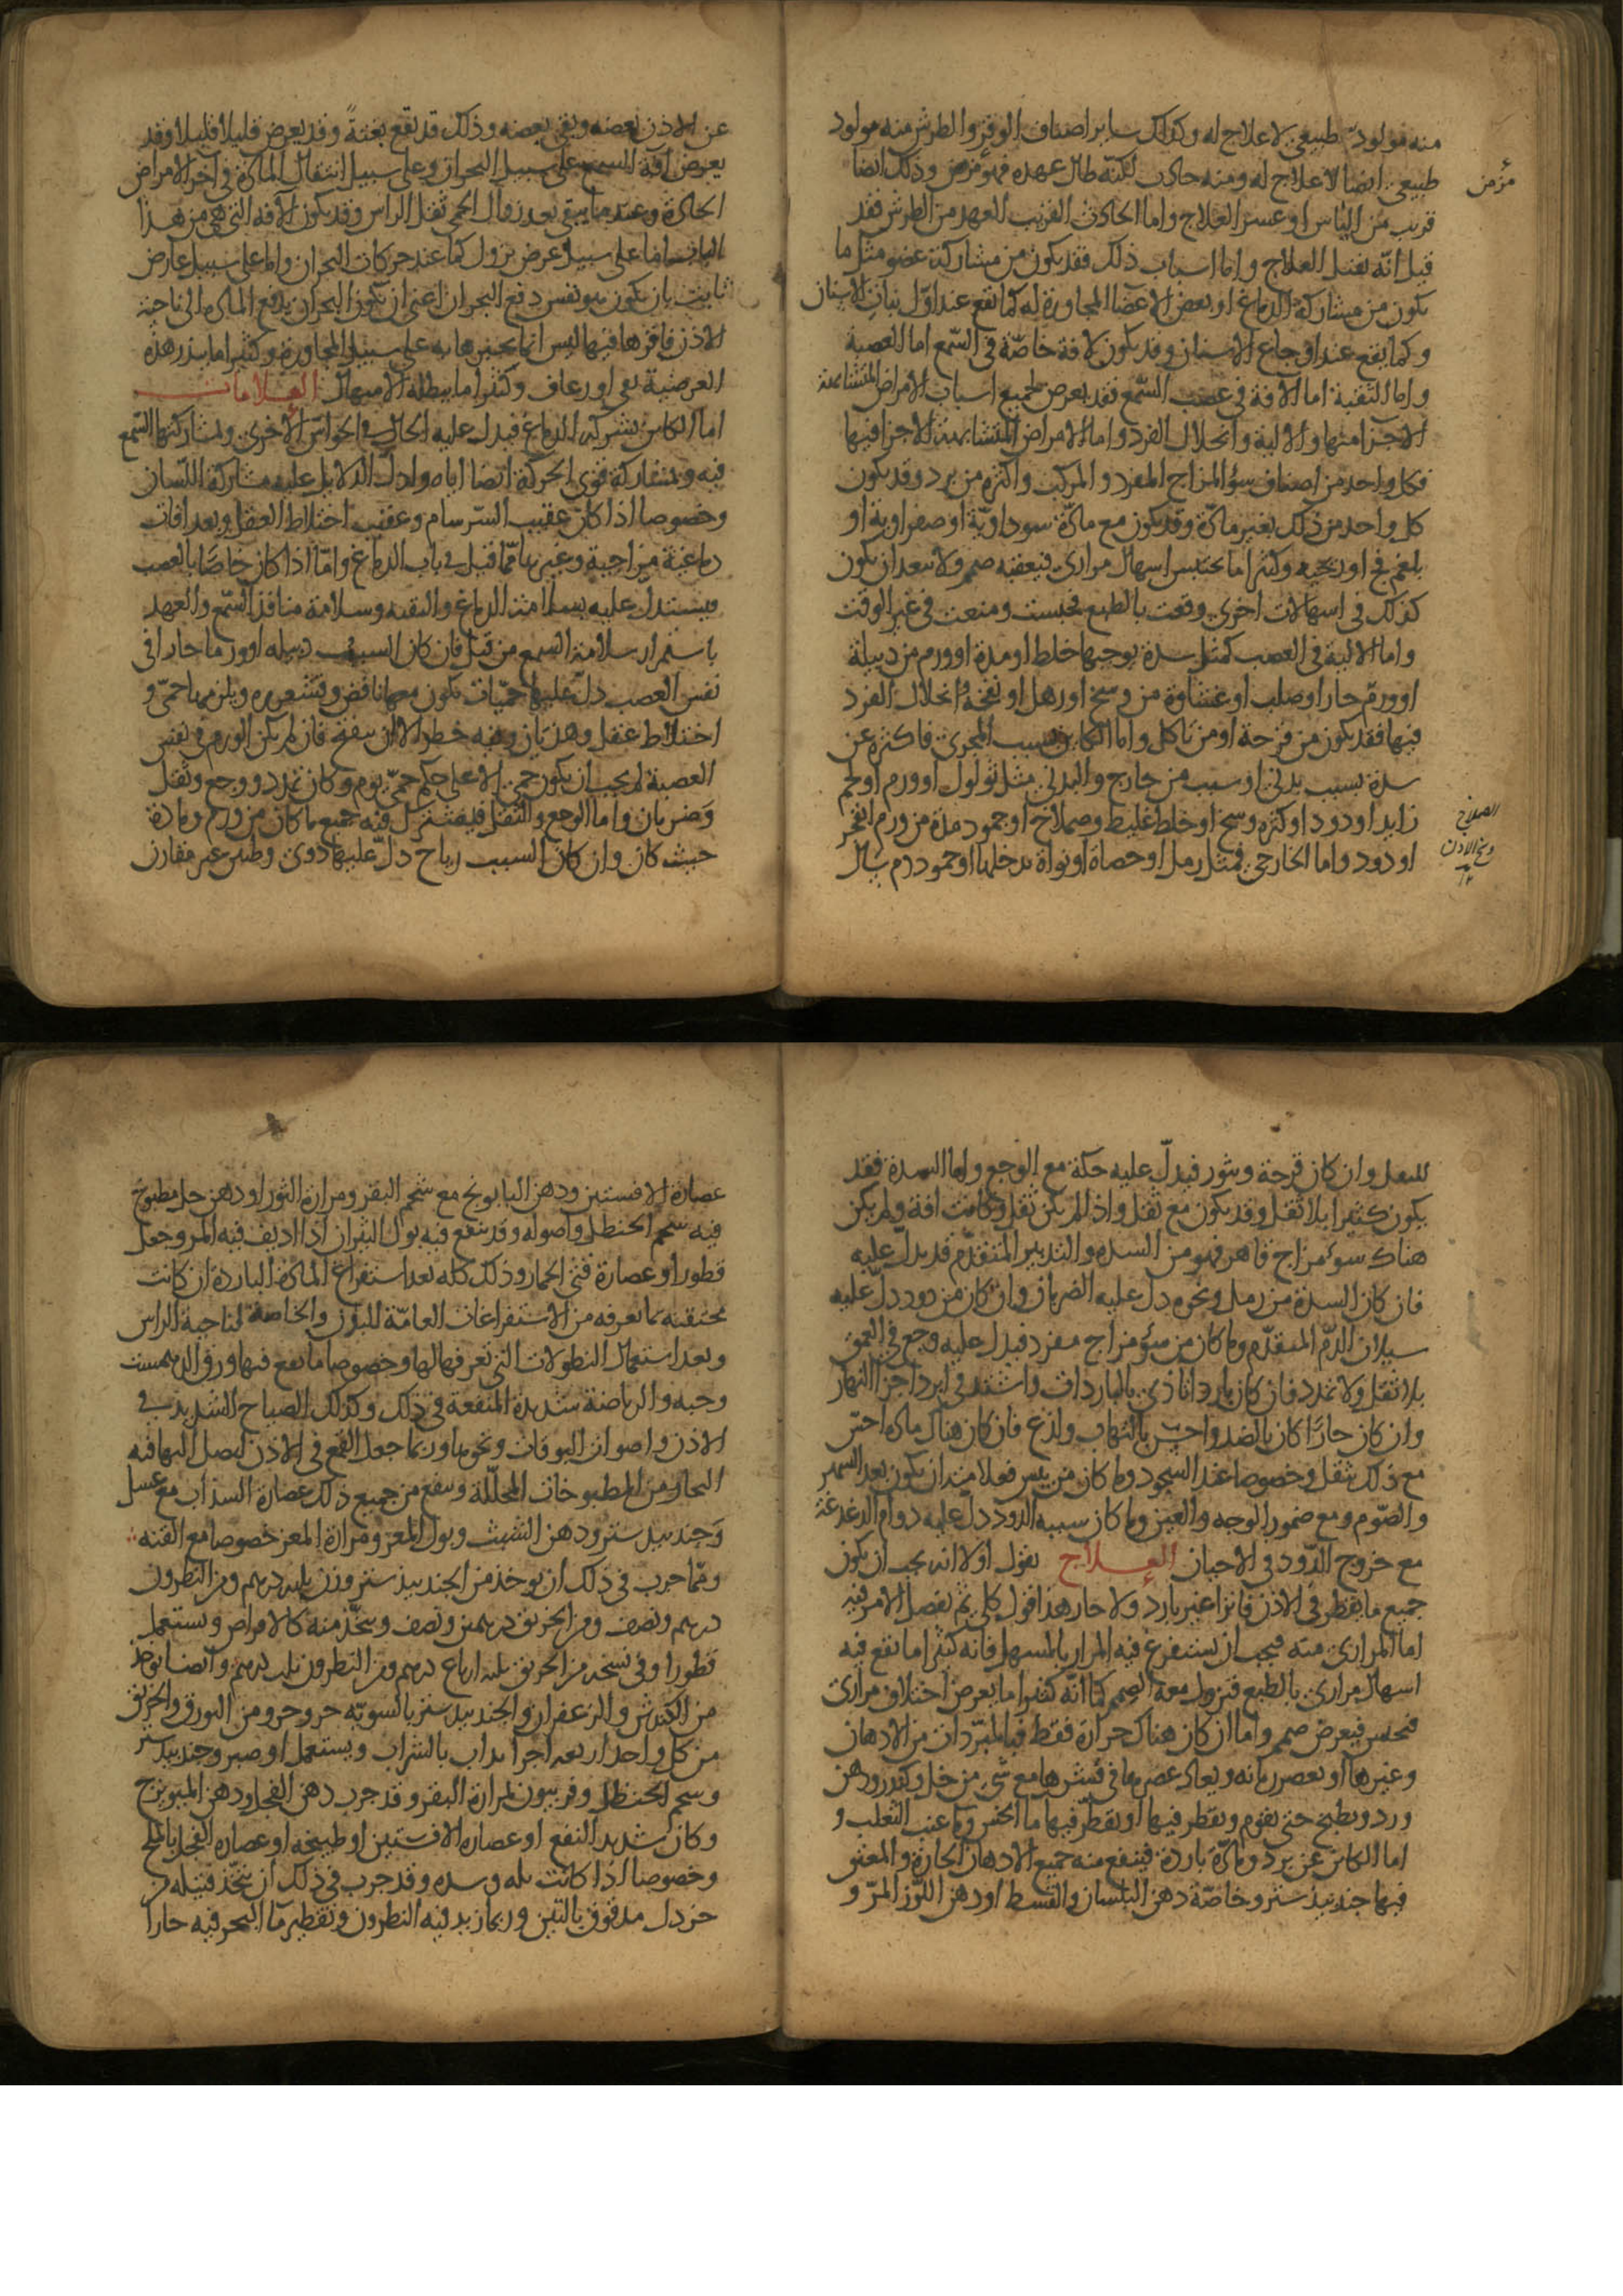 منه مولود طبيعي لا علاج له وكذلك ساير اصناف الوقر والطرش منه مولود
طبيعي ايضا لا علاج له ومنه حادث لكنه طال عهده فهو مزمن وذلك ايضا
مزمن
قريب من الياس او عسر العلاج واما الحادث القريب العهد من الطرش فقد
قيل انه يقبل العلاج واما اسباب ذلك فقد يكون من مشاركة عضو مثل ما
يكون من مشاركة الدماغ او بعض الاعضا المجاورة له كما يقع عند اول نبات الاسنان
وكما يقع عند اوجاع الاسنان وقد يكون لافة خاصة في السمع اما العصبة
واما الثقبة اما الافة في عصب السمع فقد يعرض لجميع اسباب الامراض المتشابهة
الاجزا منها والالية وانحلال الفرد واما الامراض المتشابهة الاجزا فيها
فكل واحد من اصناف سؤ المزاج المفرد والمركب واكثره من برد وقد يكون
كل واحد من ذلك بغير مادة وقد يكون مع مادة سوداوية او صفراوية او
بلغم فج او ريحيه وكثيرا ما يحتبس اسهال مراري فيعقبه صمم ولا يبعد ان يكون
كذلك في اسهالات اخرى وقعت بالطبع فحبست ومنعت في غير الوقت
واما الالية في العصب كمثل سدة يوجبها خلط او مدة او ورم من دبيلة
او ورم حار او صلب او غشاوة من وسخ او رهل او نفخة وانحلال الفرد
فيها فقد يكون من قرحة او من تاكل واما الكاين بسبب المجرى فاكثره عن
سدة بسبب بدني او سبب من خارج والبدني مثل ثولول او ورم او لحم
زايد او دود او كثرة وسخ او خلط غليظ وصملاخ او جمود مدة من ورم انفجر
الصملاخ
وسخ الاذن
او دود واما الخارجي فمثل رمل او حصاة او نواة يدخلها او جمود دم سال
عن الاذن بعضه وبقي بعضه وذلك قد يقع بغتة وقد يعرض قليلا قليلا وقد
يعرض افة السمع على سبيل البحران وعلى سبيل انتقال المادة في اخر الامراض
الحادة وعند ما يبقى بعد زوال الحمى ثقل الراس وقد يكون الافة التي هي من هذا
الباب اما على سبيل عرض يزول كما عند حركات البحران واما على سبيل عارض
ثابت بان يكون هو نفس دفع البحران اعني ان يكون البحران يدفع المادة الى ناحية
الاذن فاقرها فيها ليس انها يحبسها به على سبيل المجاورة وكثيرا ما ينذر هذه
العرضية بقي او رعاف وكثيرا ما يبطله الاسهال العلامات
اما الكاين بشركة الدماغ فيدل عليه الحال في الحواس الاخرى ومشاركتها السمع
فيه وبمشاركة قوى الحركة ايضا اياه وادل الدلايل عليه مشاركة اللسان
وخصوصا اذا كان عقيب السرسام وعقيب اختلاط العقل وبعد افات
دماغية مزاجية وغيرها مما قيل في باب الدماغ واما اذا كان خاصا بالعصب
فيستدل عليه بسلامة الدماغ والثقبة وسلامة منافذ السمع والعهد
باستمرار سلامة السمع من قبل فان كان السبب دبيلة او ورما حارا في
نفس العصب دل عليها حميات تكون معها نافض وقشعريره ويلزمها حمى و
اختلاط عقل وهذيان وفيه خطر الا ان ينفتح فان لم يكن الورم في نفس
العصبة لم يجب ان يكون حمى الا على حكم حمى يوم وكان تمدد ووجع وثقل
وضربان واما الوجع والثقل فيشترك فيه جميع ما كان من ورم ومادة
حيث كان وان كان السبب رياح دل عليها دوي وطنين غير مفارق
للثقل وان كان قرحة وبثور فيدل عليه حكة مع الوجع واما السدة فقد
يكون كثيرا بلا ثقل وقد يكون مع ثقل واذا لم يكن ثقل وكانت افة ولم يكن
هناك سوء مزاج قاهر فهو من السدة والتدبير المتقدم قد يدل عليه
فان كان السدة من رمل ونحوه دل عليه الضربان وان كان من دود دل عليه
سيلان الدم المتقدم وما كان من سؤ مزاج مفرد فيدل عليه وجع في العمق
بلا ثقل ولا تمدد فان كان باردا تاذي بالباردات واشتد في ابرد اجزا النهار
وان كان حارا كان بالضد واحس بالتهاب ولذع فان كان هناك مادة احس
مع ذلك بثقل وخصوصا عند السجود وما كان من يبس فعلامته ان يكون بعد السهر
والصوم ومع ضمور الوجه والعين وما كان سببه الدود دل عليه دوام الدغدغة
مع خروج الدود في الاحيان العلاج نقول اولا انه يجب ان يكون
جميع ما يقطر في الاذن فاترا غير بارد ولا حار هذا قول كلي ثم نفصل الامر فيه
اما المراري منه فيجب ان يستفرغ فيه المرار بالمسهل فانه كثيرا ما يقع فيه
اسهال مراري بالطبع فيزول معه الصمم كما انه كثيرا ما يعرض اختلاف مراري
فيحتبس فيعرض صمم واما ان كان هناك حرارة فقط فبالمبردات من الادهان
وغيرها او تعصر رمانة ويعاد عصيرها في قشرها مع شي من خل وكندر ودهن
ورد ويطبخ حتى يقوم ويقطر فيها او يقطر فيها ماء الخس وماء عنب الثعلب و
اما الكاين عن برد ومادة باردة فينفع منه جميع الادهان الحارة والمعتق
فيها جندبيدستر وخاصة دهن البلسان والقسط او دهن اللوز المر و
عصارة الافسنتين ودهن البابونج مع شحم البقر ومرارة الثور او دهن حل مطبوخ
فيه شحم الحنظل واصوله وقد ينفع فيه بول الثيران اذا اديف فيه المر وجعل
قطورا وعصارة قثى الحمار وذلك كله بعد استفراغ المادة الباردة ان كانت
محتقنة بما تعرفه من الاستفراغات العامة للبدن والخاصة لناحية الراس
وبعد استعمال النطولات التي تعرفها لها وخصوصا ما يقع فيها ورق الدهمست
وحبه والرياضة شديدة المنفعة في ذلك وكذلك الصياح الشديد في
الاذن واصوات البوقات ونحوها وربما جعل القمع في الاذن ليصل اليها فيه
البخار من المطبوخات المحللة وينفع من جميع ذلك عصارة السذاب مع عسل
وجندبيدستر ودهن الشبث وبول المعز ومرارة المعز خصوصا مع القنه
ومما جرب في ذلك ان يوخذ من الجندبيدستر وزن ثلثة دراهم ومن النطرون
درهم ونصف ومن الخربق درهمين ونصف ويتخذ منه كالاقراص ويستعمل
قطورا وفي نسخة من الخربق ثلثة ارباع درهم ومن النطرون ثلث درهم وايضا يوخذ
من الكندش والزعفران والجندبيدستر بالسوية جزو جزو ومن البورق والخربق
من كل واحد اربعة اجزا يداب بالشراب ويستعمل او صبر وجندبيدستر
وشحم الحنظل وفربيون بمرارة البقر وقد جرب دهن الفجل ودهن الميوبزج
وكان شديد النفع او عصارة الافسنتين او طبيخه او عصارة الفجل بالملح
وخصوصا اذا كانت بلة وسدة وقد جرب في ذلك ان يتخذ فتيلة من
خردل مدقوق بالتين وربما زيد فيه النطرون وتقطير ماء البحر فيه حارا